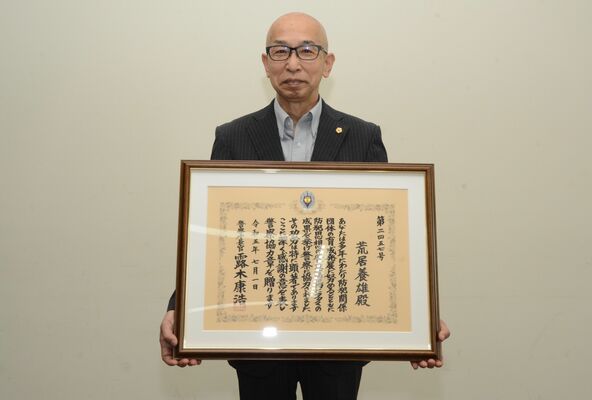 第二四五七号
荒居養雄殿
あなたは多年にわたり防犯関係
団体の育成発展に努めるとともに
防犯思想の
成果を挙げ警察に協力された
その功労は特に顕著であります
ここに深く感謝の意を表し
警察協力章を贈ります
令和五年七月一日
警察庁長官 露木康浩